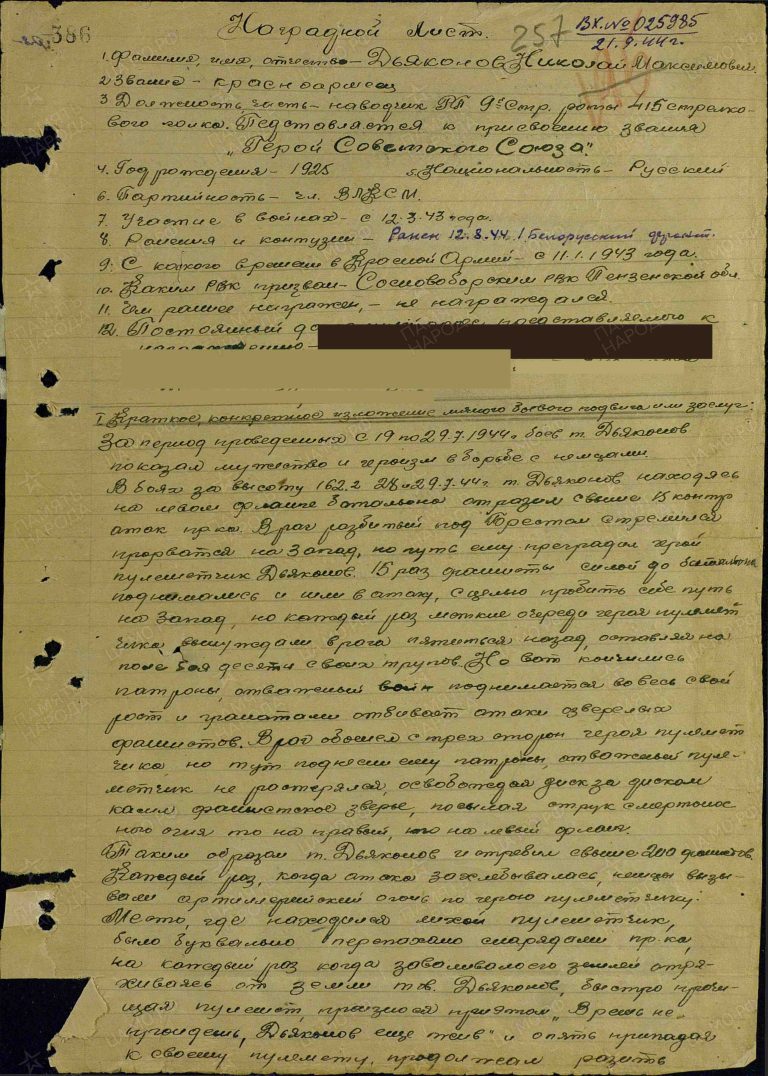 386
Наградной Лист.
257
Вх.№025985
21.9.44г.
1. Фамилия, имя, отчество – Дьяконов Николай Максимович.
2 Звание – красноармеец
3 Должность, часть – наводчик РП 9й стр. роты 415 стрелко-
вого полка. Педставляется к присвоению звания
„Герой Советского Союза".
4. Год рождения – 1925 5. Национальность – Русский
6. Партийность – чл. ВЛКСМ.
7. Участие в войнах – с 12.3.43 года.
8. Ранения и контузии – Ранен 12.8.44. 1 Белорусский фронт.
9. С какого времени в Красной Армии – с 11.1.1943 года.
10. Каким РВК призван – Сосновоборским РВК Пензенской обл.
11. Чем ранее награжден, – не награждался.
12. Постоянный представляемого к
I. Краткое, конкретное изложение личного боевого подвига или заслуг:
За период проведенных с 19 по 29.7.1944г боев т. Дьяконов
показал мужество и героизм в борьбе с немцами.
В боях за высоту 162.2 28 и 29.7.44г т. Дьяконов находясь
на левом фланге батальона отразил свыше 15 контр
атак пр-ка. Враг разбитый под Брестом стремился
прорватся на запад, но путь ему преградил герой
пулеметчик Дьяконов. 15 раз фашисты силой до батальона
поднимались и шли в атаку, с целью пробить себе путь
на запад, но каждый раз меткие очереди героя пулемет
чика вынуждали врага пятиться назад, оставляя на
поле боя десятки своих трупов. Но вот кончились
патроны, отважный воин поднимается во весь свой
рост и гранатами отбивает атаки озверелых
фашистов. Враг обошел с трех сторон героя пулемет
чика, но тут поднесли ему патроны, отважный пуле-
метчик не растерялся, освобождая диск за диском
косил фашистское зверье, посылая струи смертонос
ного огня то на правый, то на левый фланг.
Таким образом т. Дьяконов истребил свыше 200 фашистов.
Каждый раз, когда атака захлебывалась, немцы вызы-
вали артиллерийский огонь по герою пулеметчику.
Место, где находился лихой пулеметчик,
было буквально перепахано снарядами пр-ка,
но каждый раз когда заваливалого землей отря-
хиваясь от земли тов. Дьяконов, быстро прочи-
щая пулемет, произнося при этом „Врешь не
пройдешь, Дьяконов еще жив" и опять припадая
к своему пулемету, продолжал разить